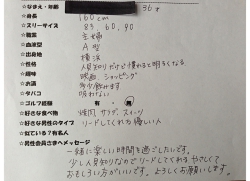 ☆なまえ・年齢 36才
☆身長 160cm
☆スリーサイズ 83 60 80
☆職業 主婦
☆血液型 A型
☆出身地 横浜
☆性格 人見知りだけど慣れると明るくなる
☆趣味 映画、ショッピング
☆お酒 多少飲みます
☆タバコ 吸わない
☆ゴルフ経験 有・無
☆好きな食べ物 焼肉 サラダ、スイーツ
☆好きな男性のタイプ リードしてくれる優しい人
☆似ている？有名人
☆男性会員さまへメッセージ
一緒に楽しい時間を過ごしたいです。
少し人見知りなのでリードしてくれるやさしくて
おもしろい方がいいです。よろしくお願いします。